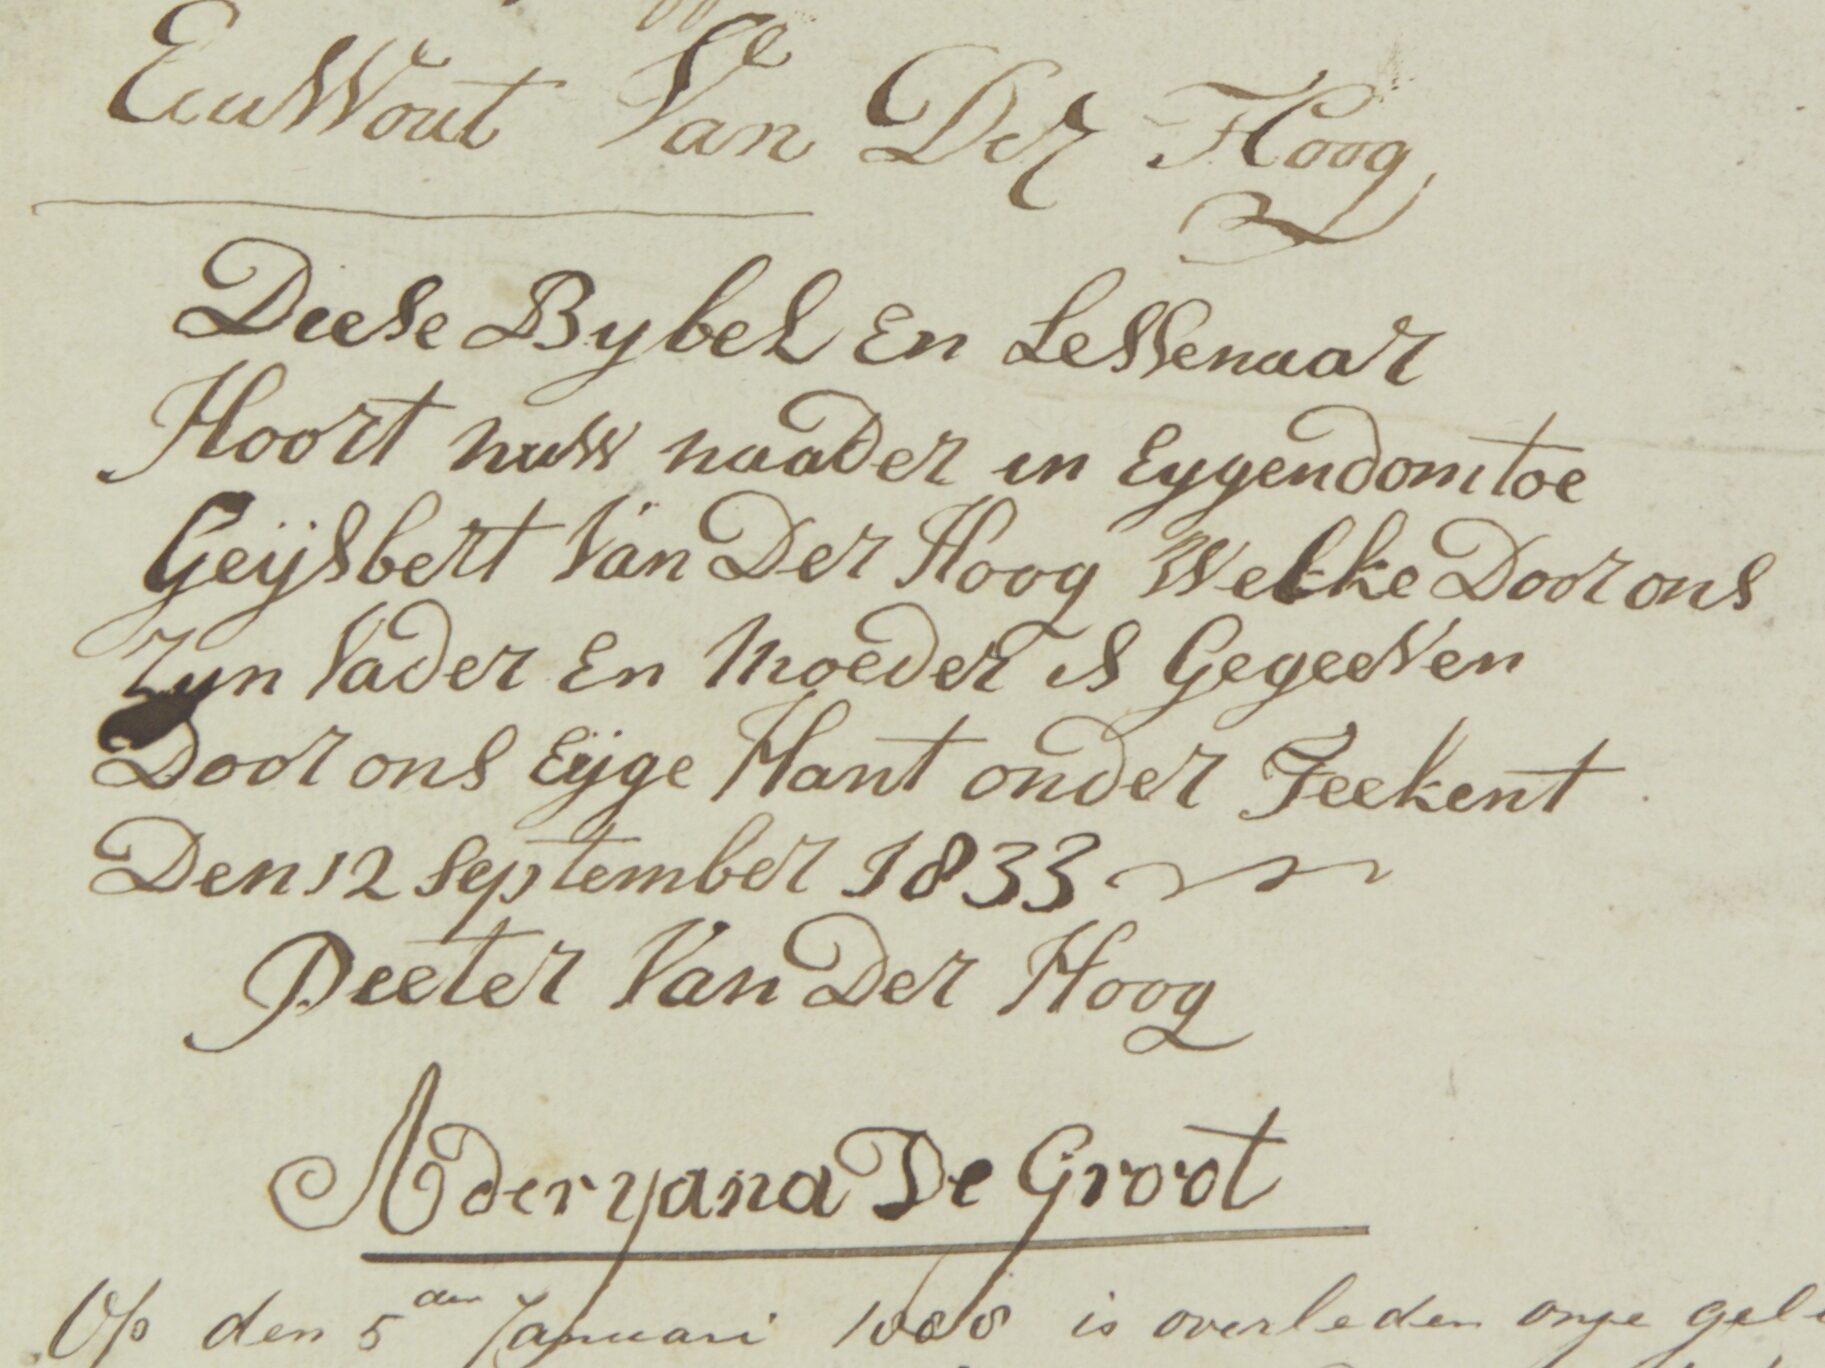 EeuWout Van Der Hoog
Diese Bybel En Lessenaar
Hoort nuw naader in Eygendom toe
Geijsbert Van Der Hoog Welke Door ons
Zyn Vader En Moeder is Gegeeven
Door ons Eijge Hant onder Teekent
Den 12 September 1833
Pieeter Van Der Hoog
Aderyana De Groot
Op den 5den Januari is overleden onze